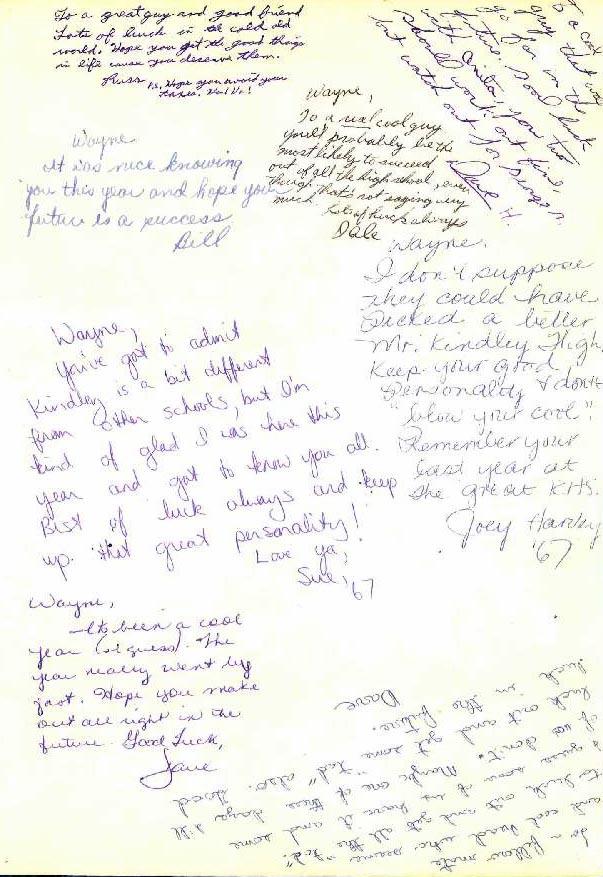 To a great guy and good friend
Lots of luck in the cold old
world. Hope you get the good things
in life cause you deserve them.
Russ
P.S. Hope you avoid your
taxes. Ha! Ha!
To a cool
guy that will
go far in the
future. Good luck
with Anita, you two
should work out fine,
but watch out for
Dave H.
Wayne,
To a real cool guy
you'll probably be the
most likely to succeed
out of all the high school, even
though that's not saying very
much.
Lots of luck always
Dale
Wayne
It was nice knowing
you this year and hope your
future is a success
Bill
Wayne,
I don't suppose
they could have
picked a better
Mr. Kindley High.
Keep your good
personality & don't
"blow your cool".
Remember your
last year at
the great KHS.
Joey
'67
Wayne,
You've got to admit
Kindley is a bit different
from other schools, but I'm
kind of glad I was here this
year and got to know you all.
Best of luck always and keep
up that great personality!
Love ya,
Sue, '67
Wayne,
It's been a cool
year (I guess). The
year really went by
fast. Hope you make
out all right in the
future. Good Luck,
Jane
To a fellow mate
and cool head who seems
to luck out and get all the
guess some of us have it and some
of us don't. Maybe one of these days I'll
luck out and get some also. Good
luck in the future.
Dave